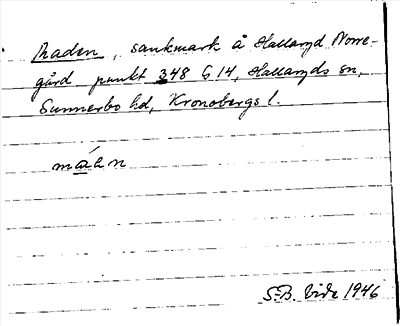 Maden, sankmark å Hallaryd Norre-
gård punkt 348 G 14, Hallaryds sn,
Sunnerbo hd, Kronobergs l.
S-B. Vide 1946